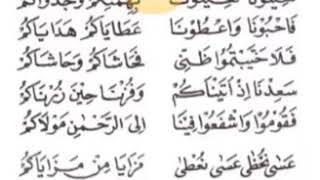 فَاحْبُوْنَا وَاعْطُوْنَا عَطَايَاكُمْ هَدَايَاكُمْ
فَلَا خَيَّبْتُمُوْا ظَنِّيْ فَحَاشَاكُمْ وَحَاشَاكُمْ
سَعِدْنَا اِذْ اَتَيْنَاكُمْ وَفُزْنَا حِيْنَ زُرْنَاكُمْ
فَقُوْمُوْا وَاشْفَعُوْا فِيْنَا اِلَى الرَّحْمٰنِ مَوْلَاكُمْ
عَسٰى نُحْظٰى عَسٰى نُعْطٰى مَزَايَا مِنْ مَزَايَاكُمْ